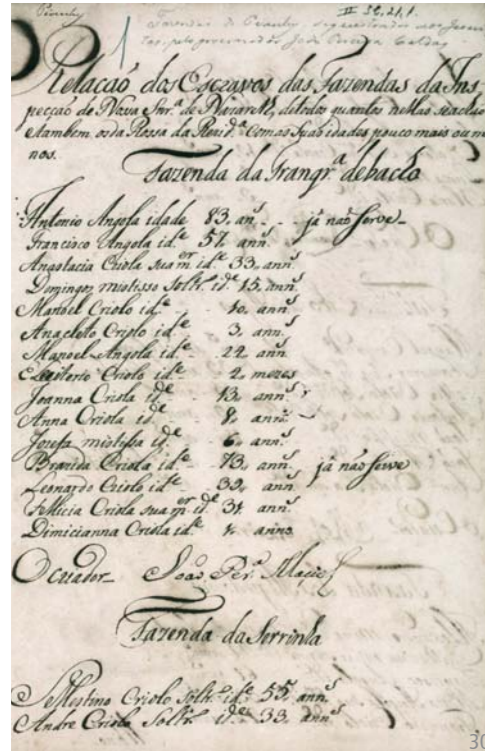 Piauhy
II 32,21,1.
Fazendas do Piauhy, sequestradas aos Jesui
tas, pelo governador João Pereira Caldas
1
Relacaó dos Escravos das Fazendas da Ins-
pecçaó de Nossa Snr.ª de Nazareth, detodos quantos nellas seachaõ
etambem os da Rossa da Rezid.ª Comas suas idades pouco mais ou me
nos.
Fazenda da debacho
Antonio Angola idade 83, an.s já naó serve
Francisco Angola id.e 57, ann.s
Anastacia Criola sua m.er id.e 33, ann.s
Domingos mistisso Soltr.o id.e 15, ann.s
Manoel Criolo id.e 10, ann.s
Anacleto Criolo id.e 3, ann.s
Manoel Angola id.e 22, ann.s
Criolo id.e 2, mezes
Joanna Criola id.e 13, ann.s
Anna Criola id.e 8, ann.s
Jozefa mistissa id.e 6, ann.s
Criola id.e 73, ann.s já naó serve
Leonardo Criolo id.e 39, ann.s
Felicia Criola sua m.er id.e 31, ann.s
Dimicianna Criola id.e 4, annos
O criador João Per.ª Maciel
Fazenda da Serrinha
Criolo Soltr.o id.e 55, ann.s
Andre Criolo Soltr.o id.e 33, ann.s
30